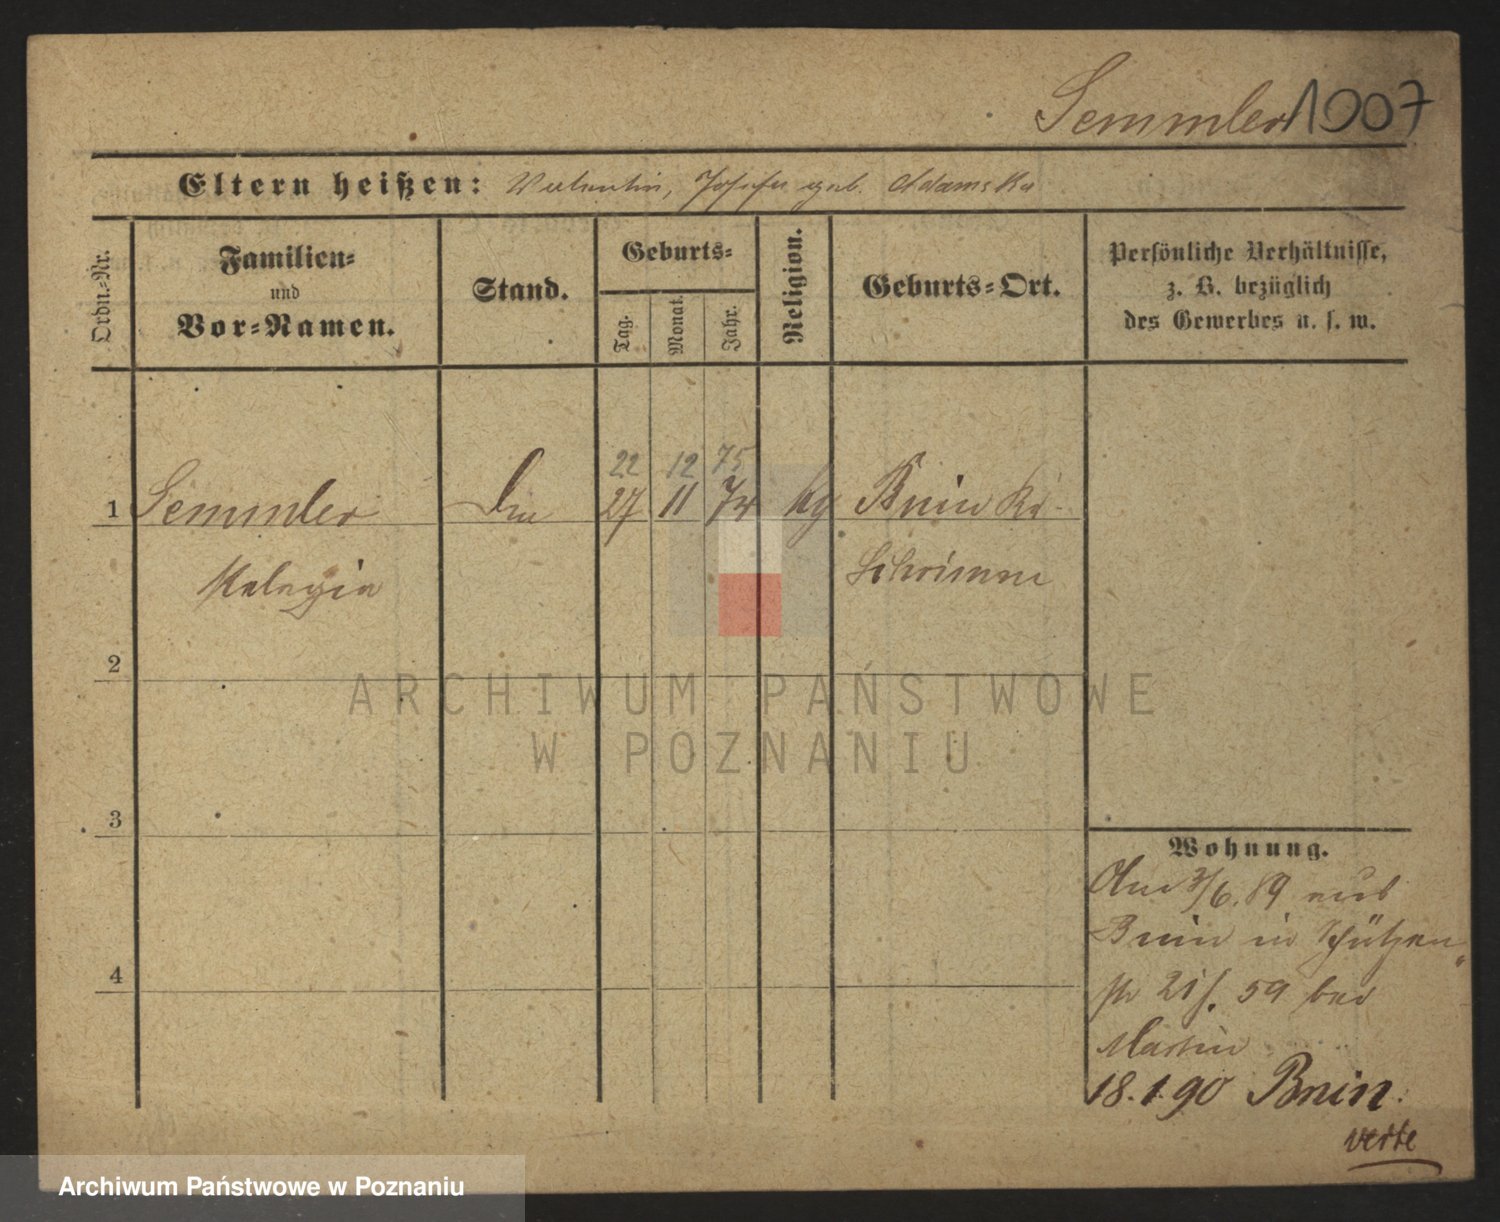 Semmler 1907
Eltern heißen: Valentin, Josefa geb. Adamska
Ordn.-Nr.
Familien-
und
Vor-Namen.
Stand.
Geburts-
Tag.
Monat.
Jahr.
Religion.
Geburts-Ort.
Persönliche Verhältnisse,
z. B. bezüglich
des Gewerbes u. s. w.
22 12 75
1 Semmler 27 11 kg Bnin Kr.
Pelagia Schrimm
2
ARCHIWUM PAŃSTWOWE
W POZNANIU
3
4
Wohnung.
Am 3/6.89 aus
Bnin in Schützen
str 21 59 bei
Martin
18.1.90 Bnin.
verte
Archiwum Państwowe w Poznaniu